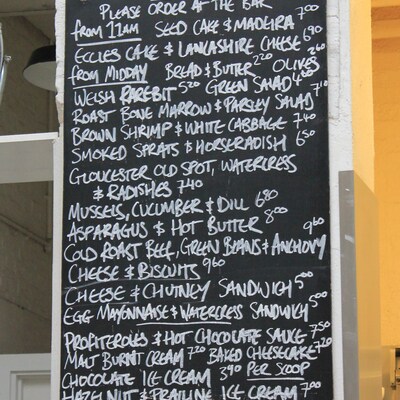 PLEASE ORDER AT THE BAR
from 11am SEED CAKE & MADEIRA 7.00
ECCLES CAKE & LANCASHIRE CHEESE 6.90
from MIDDAY BREAD & BUTTER 2.20 OLIVES 2.60
WELSH RAREBIT 5.20 GREEN SALAD
ROAST BONE MARROW & PARSLEY SALAD 7.10
BROWN SHRIMP & WHITE CABBAGE 7.40
SMOKED SPRATS & HORSERADISH 6.50
GLOUCESTER OLD SPOT, WATERCRESS
& RADISHES 7.40
MUSSELS, CUCUMBER & DILL 6.80
ASPARAGUS & HOT BUTTER 8.00
COLD ROAST BEEF, GREEN BEANS & ANCHOVY 9.60
CHEESE & BISCUITS 9.60
CHEESE & CHUTNEY SANDWICH 5.00
EGG MAYONNAISE & WATERCRESS SANDWICH 5.00
PROFITEROLES & HOT CHOCOLATE SAUCE 7.50
MALT BURNT CREAM 7.20 BAKED CHEESECAKE 7.20
CHOCOLATE ICE CREAM 3.90 PER SCOOP
HAZELNUT & PRALINE ICE CREAM 7.00